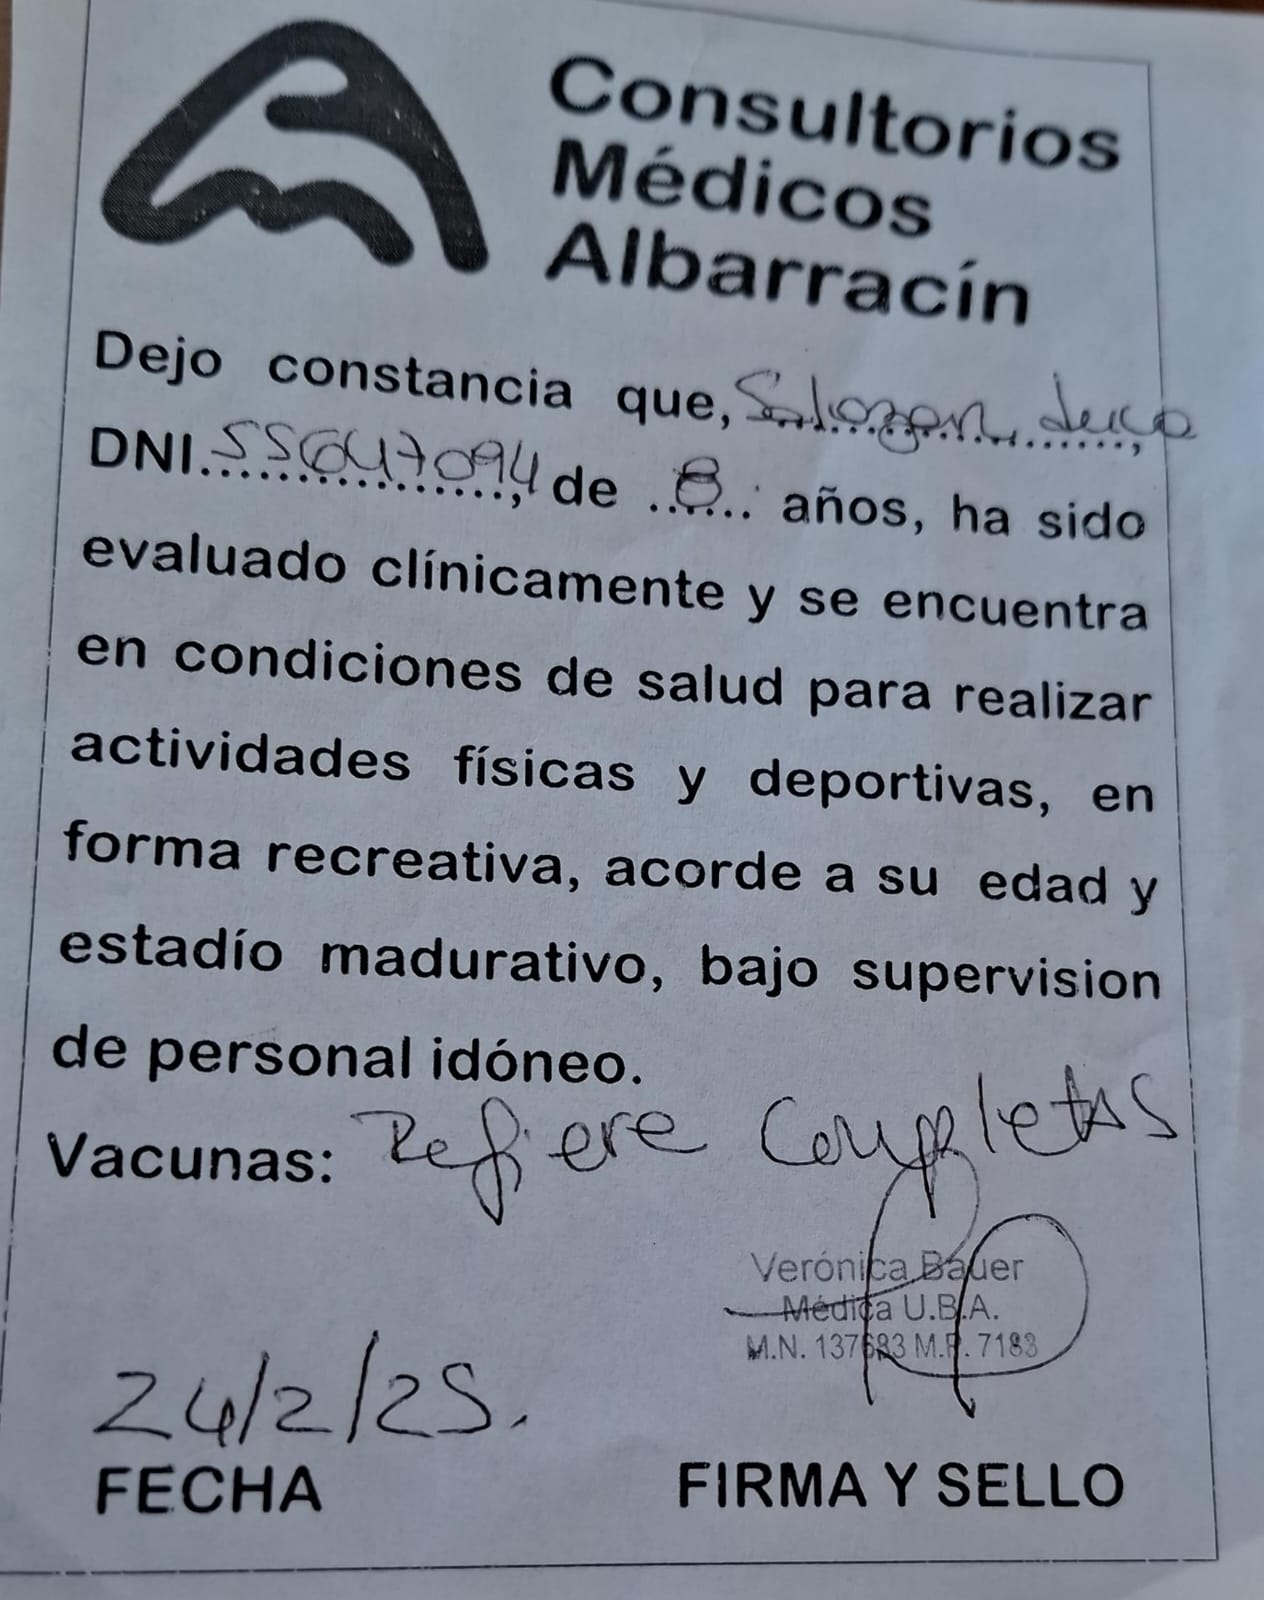 Consultorios
Médicos
Albarracín
Dejo constancia que,
DNI. 55647094, de 8 años, ha sido
evaluado clínicamente y se encuentra
en condiciones de salud para realizar
actividades físicas y deportivas, en
forma recreativa, acorde a su edad y
estadío madurativo, bajo supervision
de personal idóneo.
Vacunas: Refiere Completas
Verónica Bauer
Médica U.B.A.
M.N. 137683 M.P. 7183
24/2/25.
FECHA
FIRMA Y SELLO